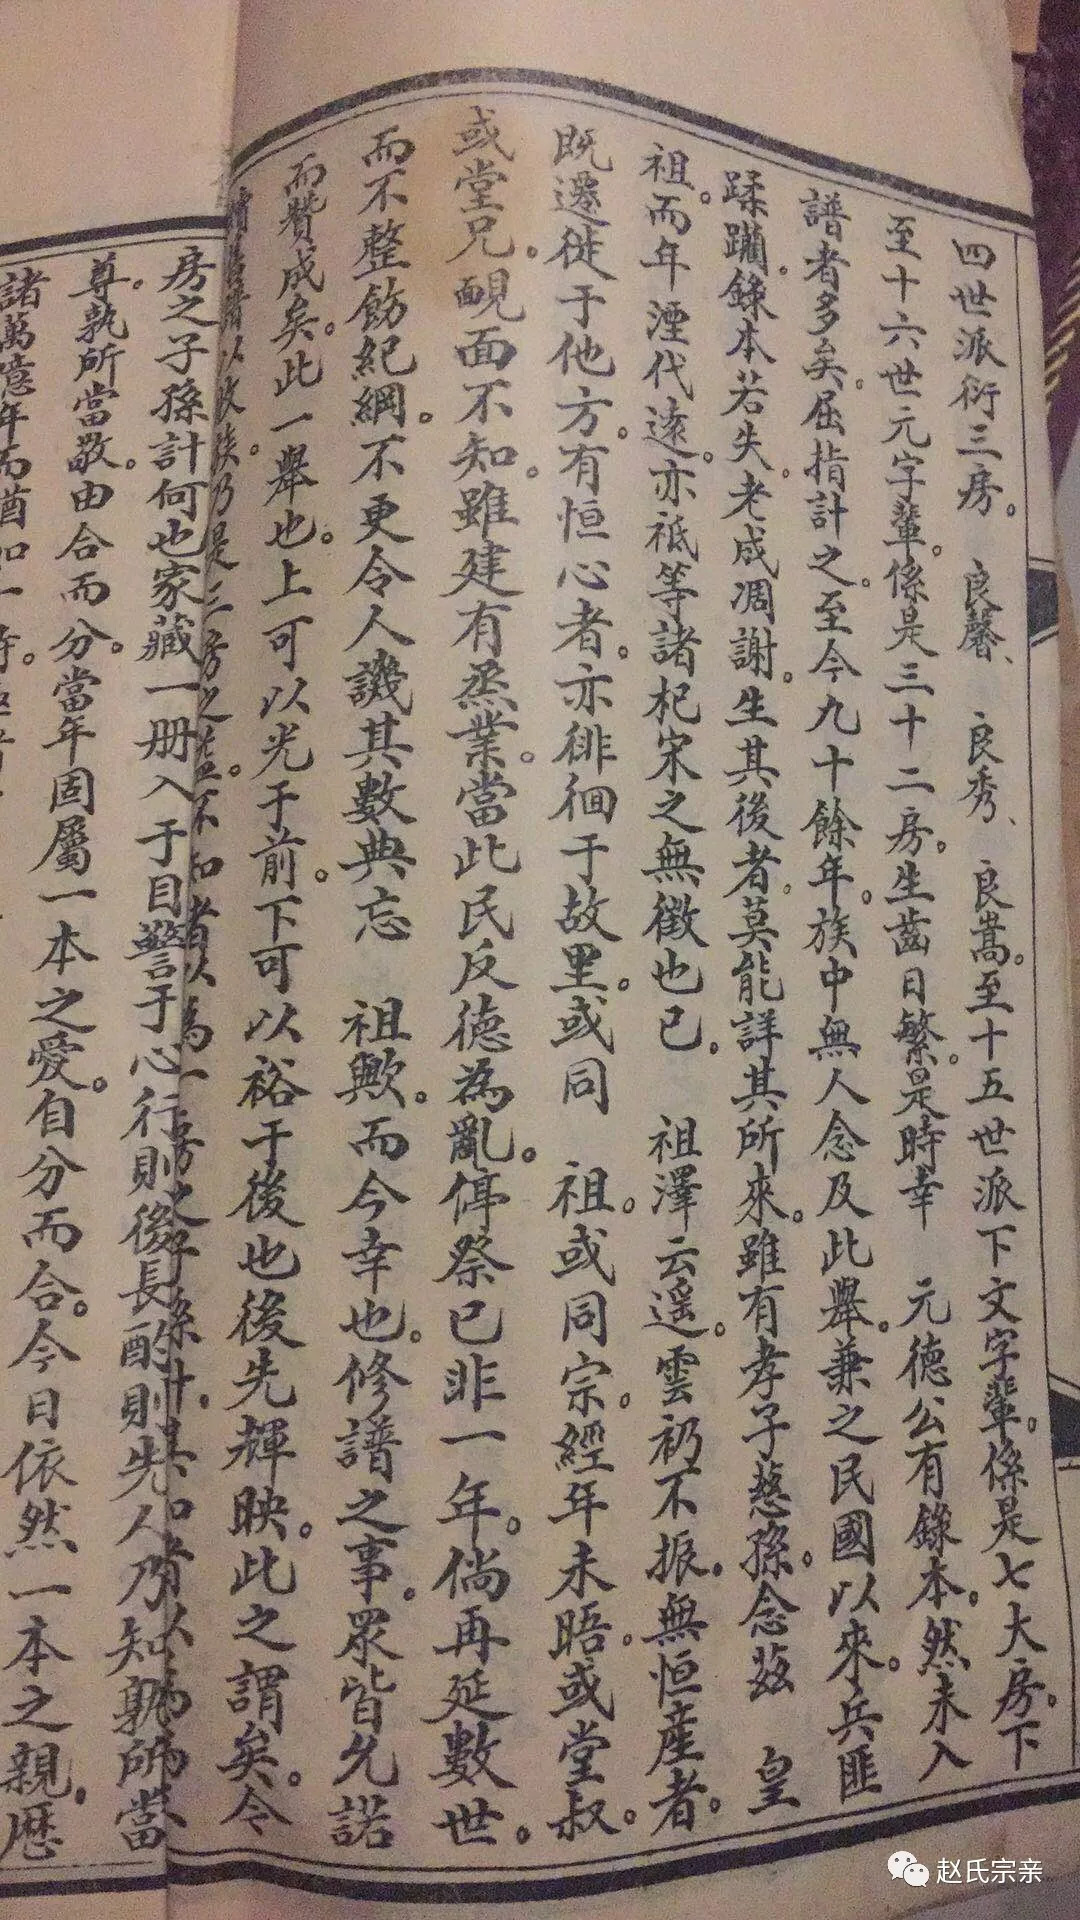 四世派衍三房。　良馨、　良秀、　良嵩。至十五世派下文字輩。係是七大房。下
至十六世元字輩。係是三十二房。生齒日繁。是時幸　元德公有錄本。然未入
譜者多矣。屈指計之。至今九十餘年。族中無人念及此舉。兼之民國以來。兵匪
蹂躪。錄本若失。老成凋謝。生其後者。莫能詳其所來。雖有孝子慈孫。念茲　皇
祖。而年湮代遠。亦祗等諸杞宋之無徵也已。　祖澤云遥。雲礽不振。無恒産者。
既遷徙于他方。有恒心者。亦徘徊于故里。或同　祖。或同宗。經年未晤。或堂叔。
或堂兄。覿面不知。雖建有烝業。當此民反德為亂。停祭已非一年。倘再延數世。
而不整飭紀綱。不更令人譏其數典忘　祖歟。而今幸也。修譜之事。眾皆允諾
而贊成矣。此一舉也。上可以光于前。下可以裕于後也後先輝映。此之謂矣。今
以收族。乃是三房之益。不知者以為一房之子孫計。其知者以為
房之子孫計何也家藏一册入于目警于心行則後長酌則先人乃知孰所當
尊。孰所當敬。由合而分。當年固屬一本之愛。自分而合。今日依然一本之親。歷
諸萬億年而酋如一